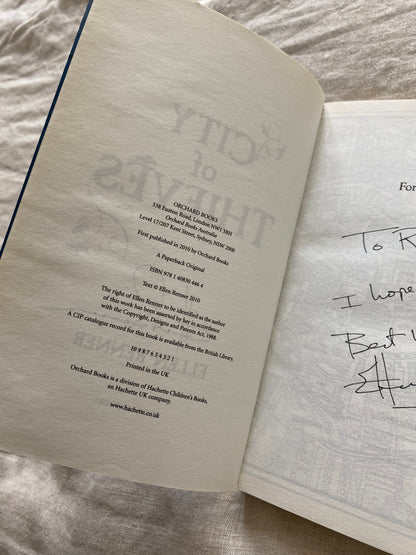 ORCHARD BOOKS
338 Euston Road, London NW1 3BH
Orchard Books Australia
Level 17/207 Kent Street, Sydney, NSW 2000
First published in 2010 by Orchard Books
A Paperback Original
ISBN 978 1 40830 446 4
Text © Ellen Renner 2010
The right of Ellen Renner to be identified as the author
of this work has been asserted by her in accordance
with the Copyright, Designs and Patents Act, 1988.
A CIP catalogue record for this book is available from the British Library.
10 9 8 7 6 5 4 3 2 1
Printed in the UK
Orchard Books is a division of Hachette Children's Books,
an Hachette UK company.
www.hachette.co.uk
CITY
of
THIEVES
ELLEN RENNER
For
To R
I hope
Best